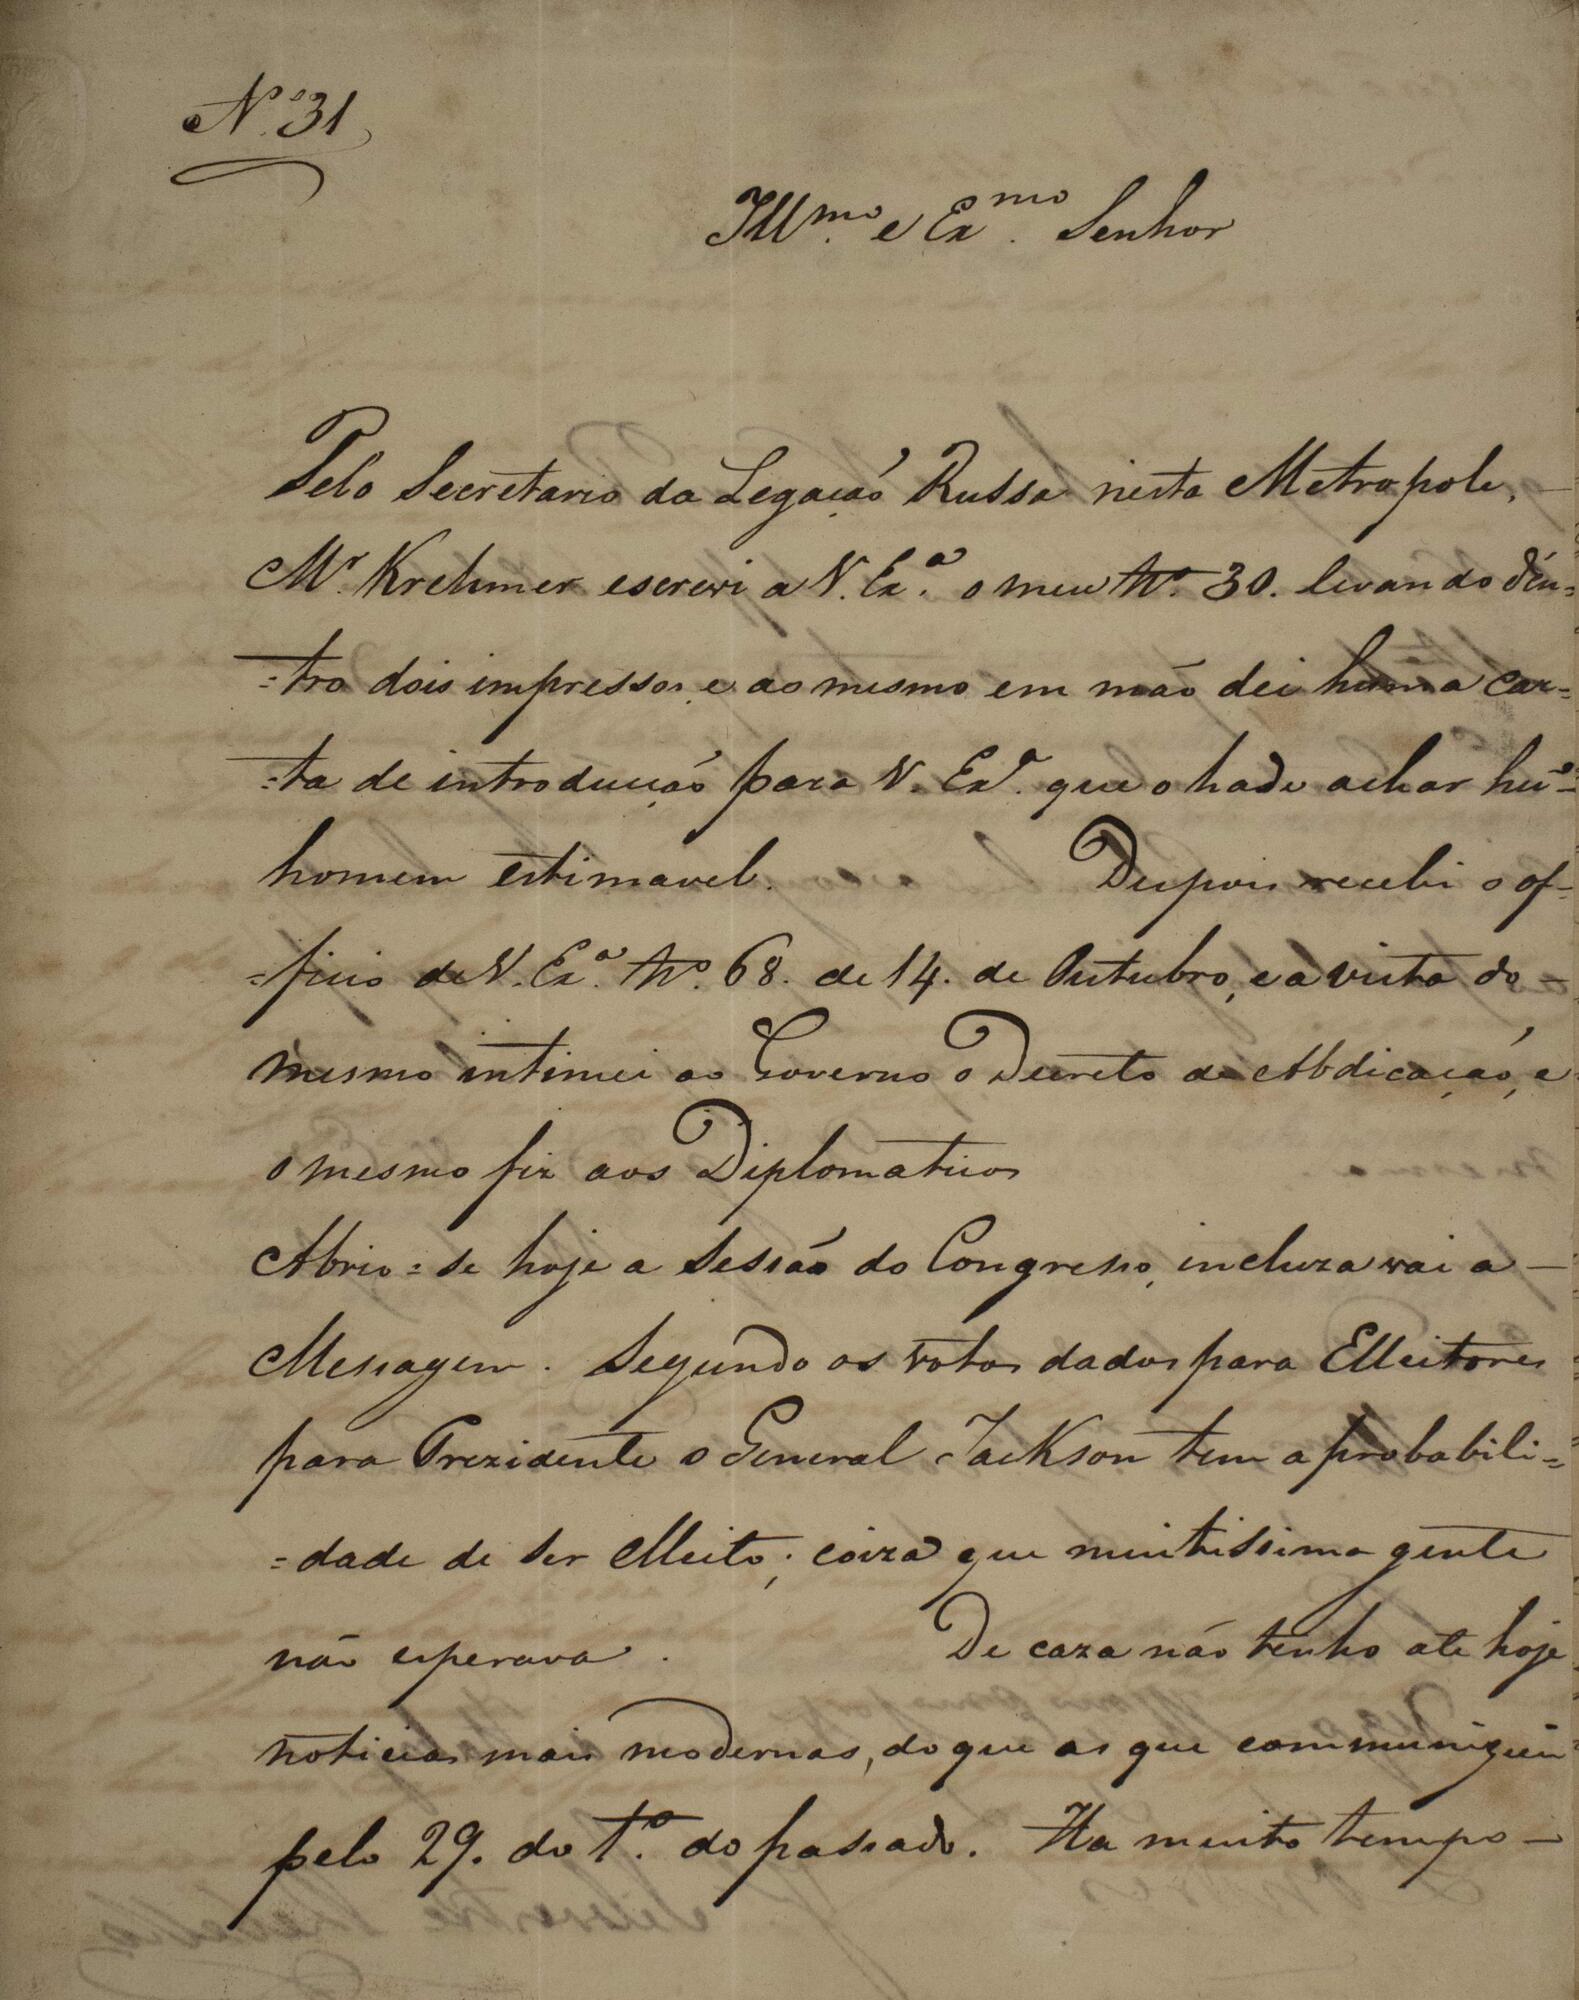 Nº 31
Illmo. e Exmo. Senhor
Pelo Secretario da Legação Russa nesta Metropole,
Mr. Krehmer escrevi a V. Exa. o meu Nº. 30. levando den=
=tro dois impressos, e ao mesmo em mão dei huma car=
=ta de introducção para V. Exa. que o hade achar hũ
homem estimavel. Despois recebi o of=
=ficio de V. Exa. Nº. 68. de 14. de Outubro, e a vista do
mesmo intimei ao Governo o Decreto de Abdicação, e
o mesmo fiz aos Diplomaticos
Abrio=se hoje a Sessão do Congresso, incluza vai a
Messagem. Segundo os votos dados para Elleitores
para Prezidente o General Jackson tem a probabili=
=dade de ser elleito; coiza que muitissima gente
não esperava. De caza não tenho ate hoje
noticias mais modernas, do que as que communiquei
pelo 29. do 1º. do passado. Ha muito tempo